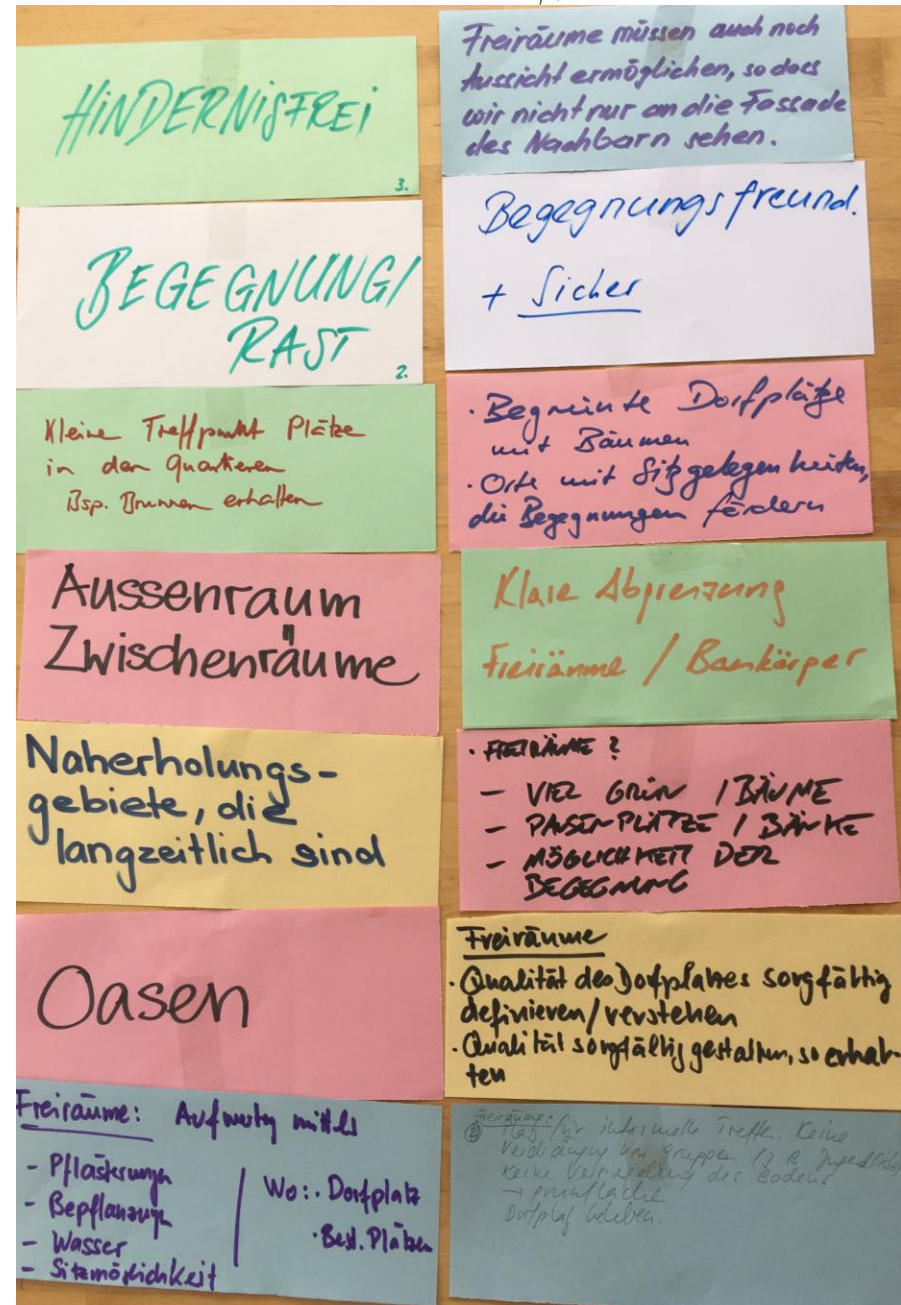 HINDERNISFREI
3.
BEGEGNUNG/
RAST
2.
Kleine Treffpunkt Plätze
in den Quartieren
Bsp. Brunnen erhalten
Aussenraum
Zwischenräume
Naherholungs-
gebiete, die
langzeitlich sind
Oasen
Freiräume: Aufwertung mittels
- Pflästerungen
- Bepflanzungen
- Wasser
- Sitzmöglichkeit
Wo: · Dorfplatz
· Best. Plätzen
Freiräume müssen auch noch
Aussicht ermöglichen, so dass
wir nicht nur an die Fassade
des Nachbarn sehen.
Begegnungsfreund.
+ Sicher
· Begrünte Dorfplätze
mit Bäumen
· Orte mit Sitzgelegenheiten,
die Begegnungen fördern
Klare Abgrenzung
Freiräume / Baukörper
· FREIRÄUME ?
- VIEL GRÜN / BÄUME
- PAUSENPLÄTZE / BÄNKE
- MÖGLICHKEIT DER
BEGEGNUNG
Freiräume
· Qualität des Dorfplatzes sorgfältig
definieren/verstehen
· Qualität sorgfältig gestalten, so erhal-
ten
Freiräume:
für informelle Treffen. Keine
Verdrängung von Gruppen (z.B. Jugendliche)
Keine des Bodens
→
Dorfplatz beleben.